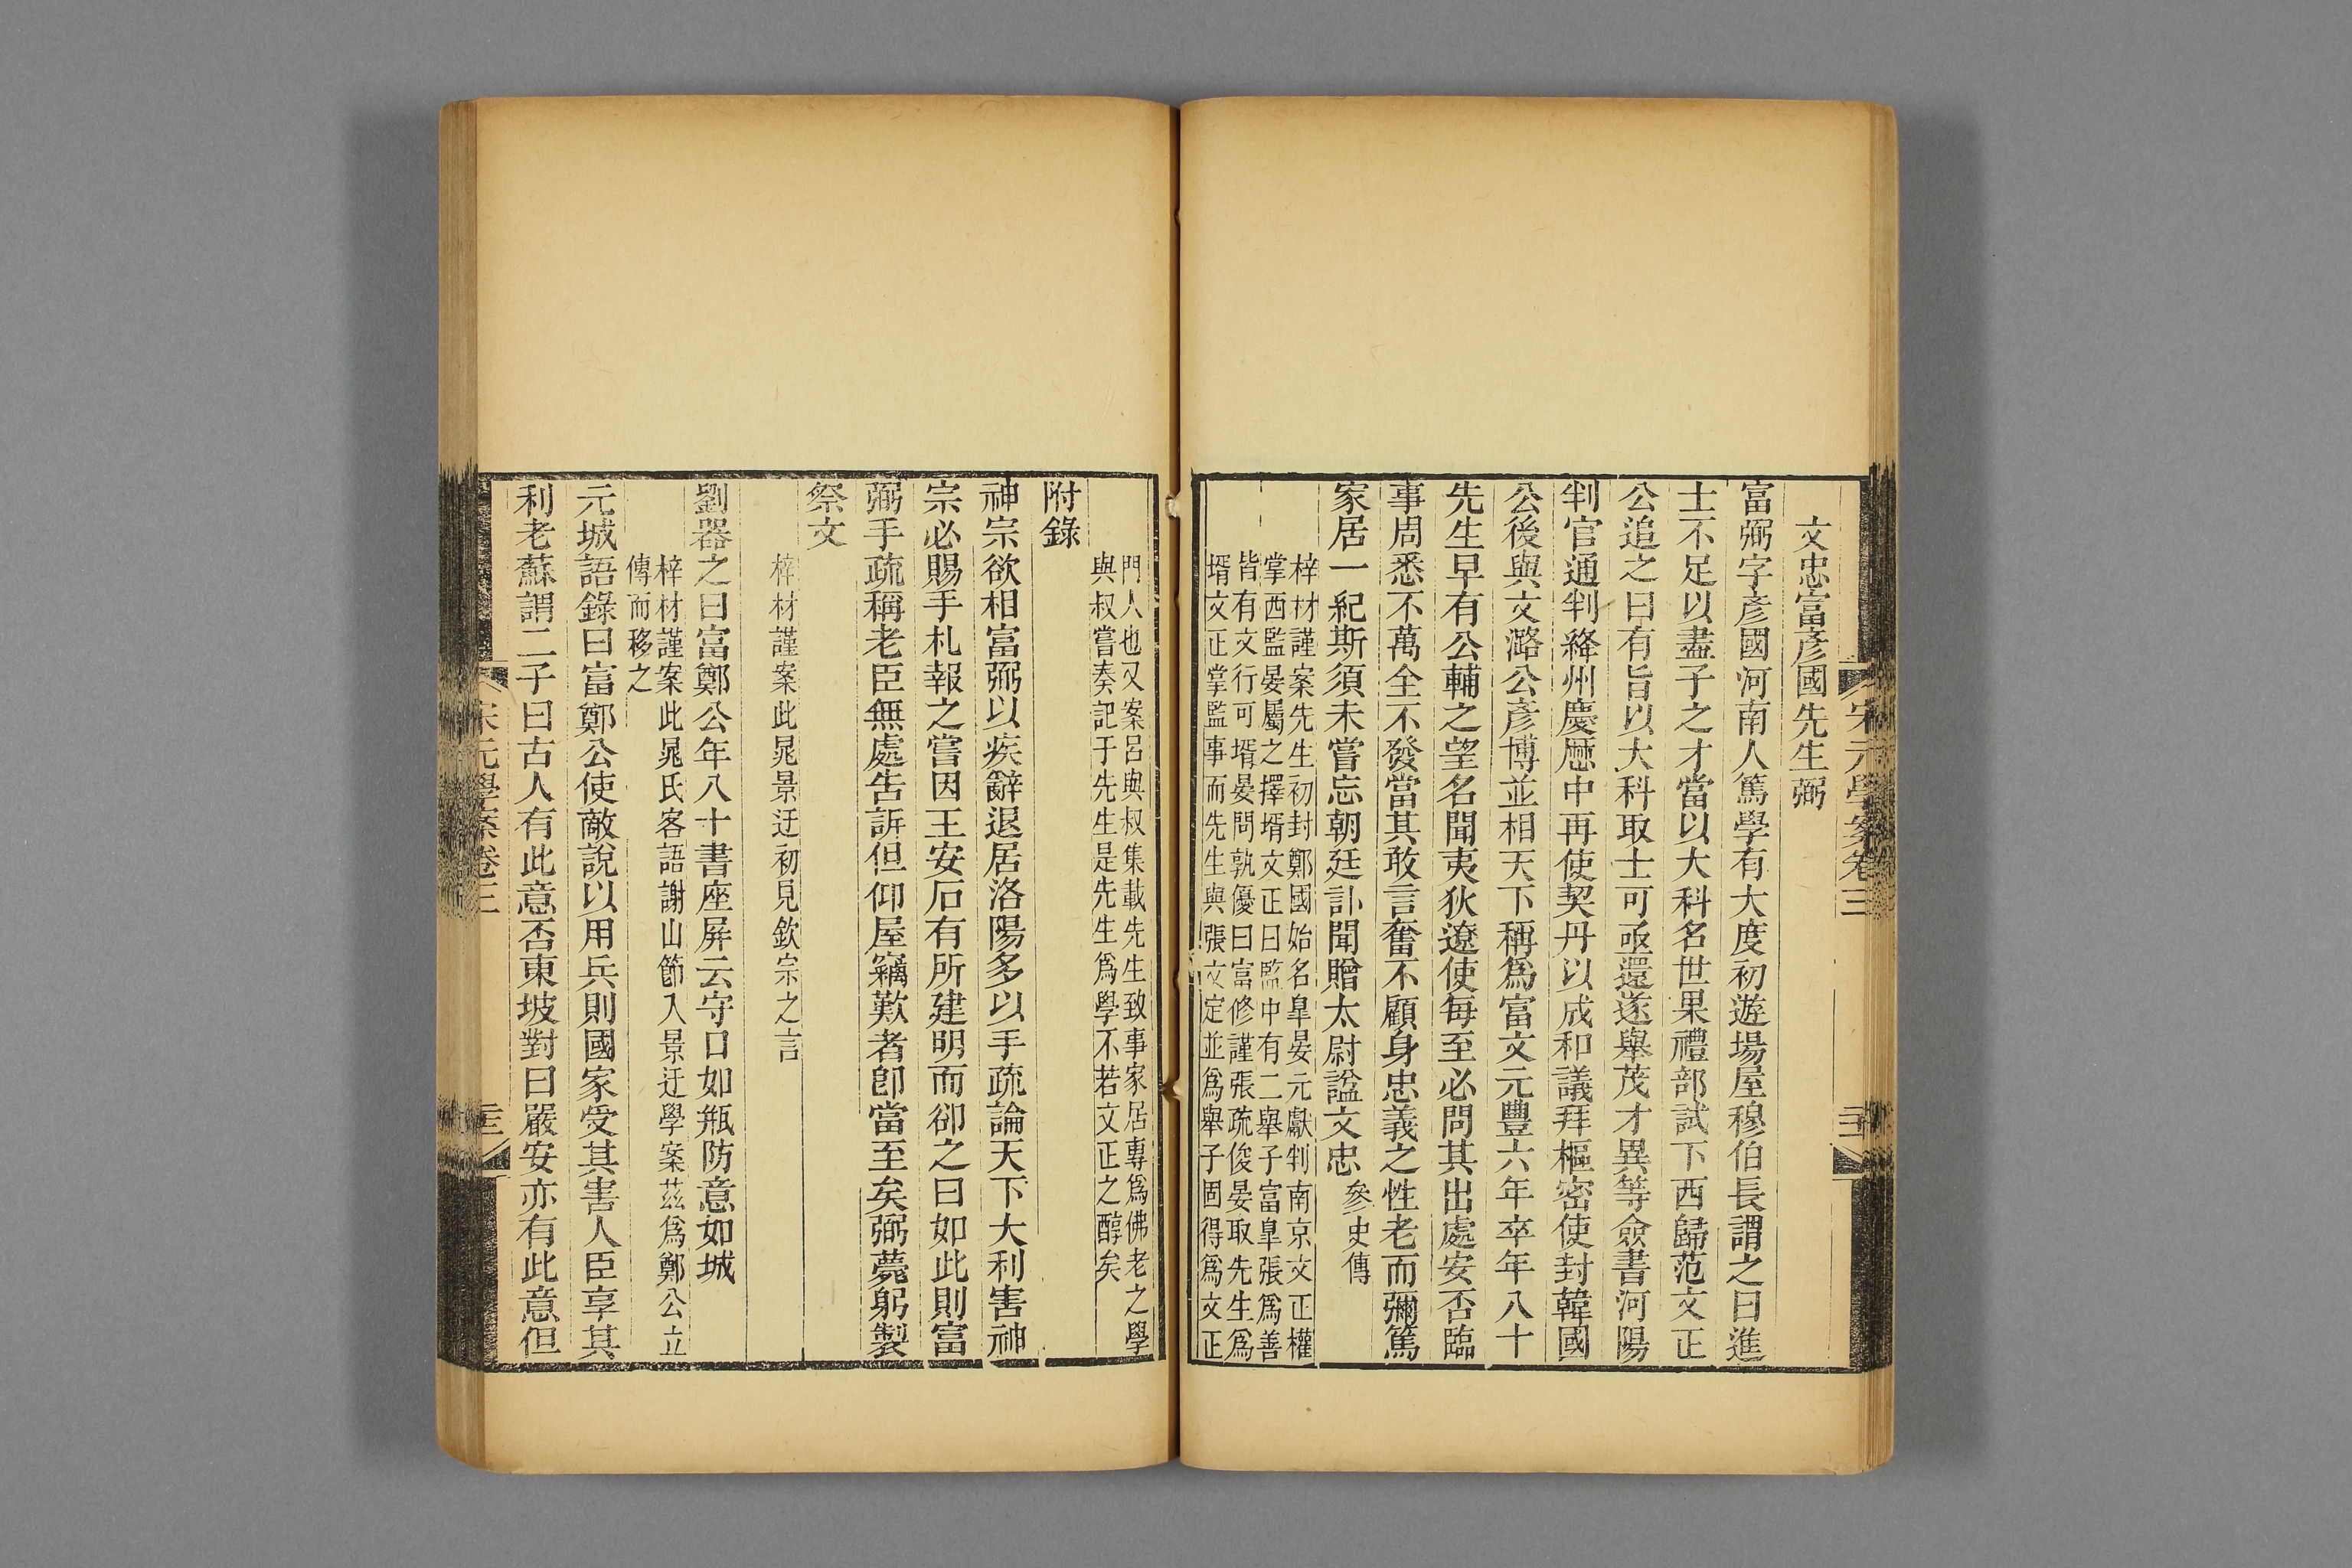 宋元學案卷三
文忠富彥國先生弼
富弼字彥國河南人篤學有大度初遊場屋穆伯長謂之曰進
士不足以盡子之才當以大科名世果禮部試下西歸范文正
公追之曰有旨以大科取士可亟還遂舉茂才異等僉書河陽
判官通判絳州慶歷中再使契丹以成和議拜樞密使封韓國
公後與文潞公彥博並相天下稱爲富文元豐六年卒年八十
先生早有公輔之望名聞夷狄遼使每至必問其出處安否臨
事周悉不萬全不發當其敢言奮不顧身忠義之性老而彌篤
家居一紀斯須未嘗忘朝廷訃聞贈太尉諡文忠參史傳
梓材謹案先生初封鄭國始名皐晏元獻判南京文正權
掌西監晏屬之擇壻文正曰監中有二舉子富皐張爲善
皆有文行可壻晏問孰優曰富修謹張疏俊晏取先生爲
壻文正掌監事而先生與張文定並爲舉子固得爲文正
門人也又案呂與叔集載先生致事家居專爲佛老之學
與叔嘗奏記于先生是先生爲學不若文正之醇矣
附錄
神宗欲相富弼以疾辭退居洛陽多以手疏論天下大利害神
宗必賜手札報之嘗因王安石有所建明而卻之曰如此則富
弼手疏稱老臣無處告訴但仰屋竊歎者卽當至矣弼薨躬製
祭文
梓材謹案此晁景迂初見欽宗之言
劉器之曰富鄭公年八十書座屏云守口如瓶防意如城
梓材謹案此晁氏客語謝山節入景迂學案茲爲鄭公立
傳而移之
元城語錄曰富鄭公使敵說以用兵則國家受其害人臣享其
利老蘇謂二子曰古人有此意否東坡對曰嚴安亦有此意但
宋元學案卷三